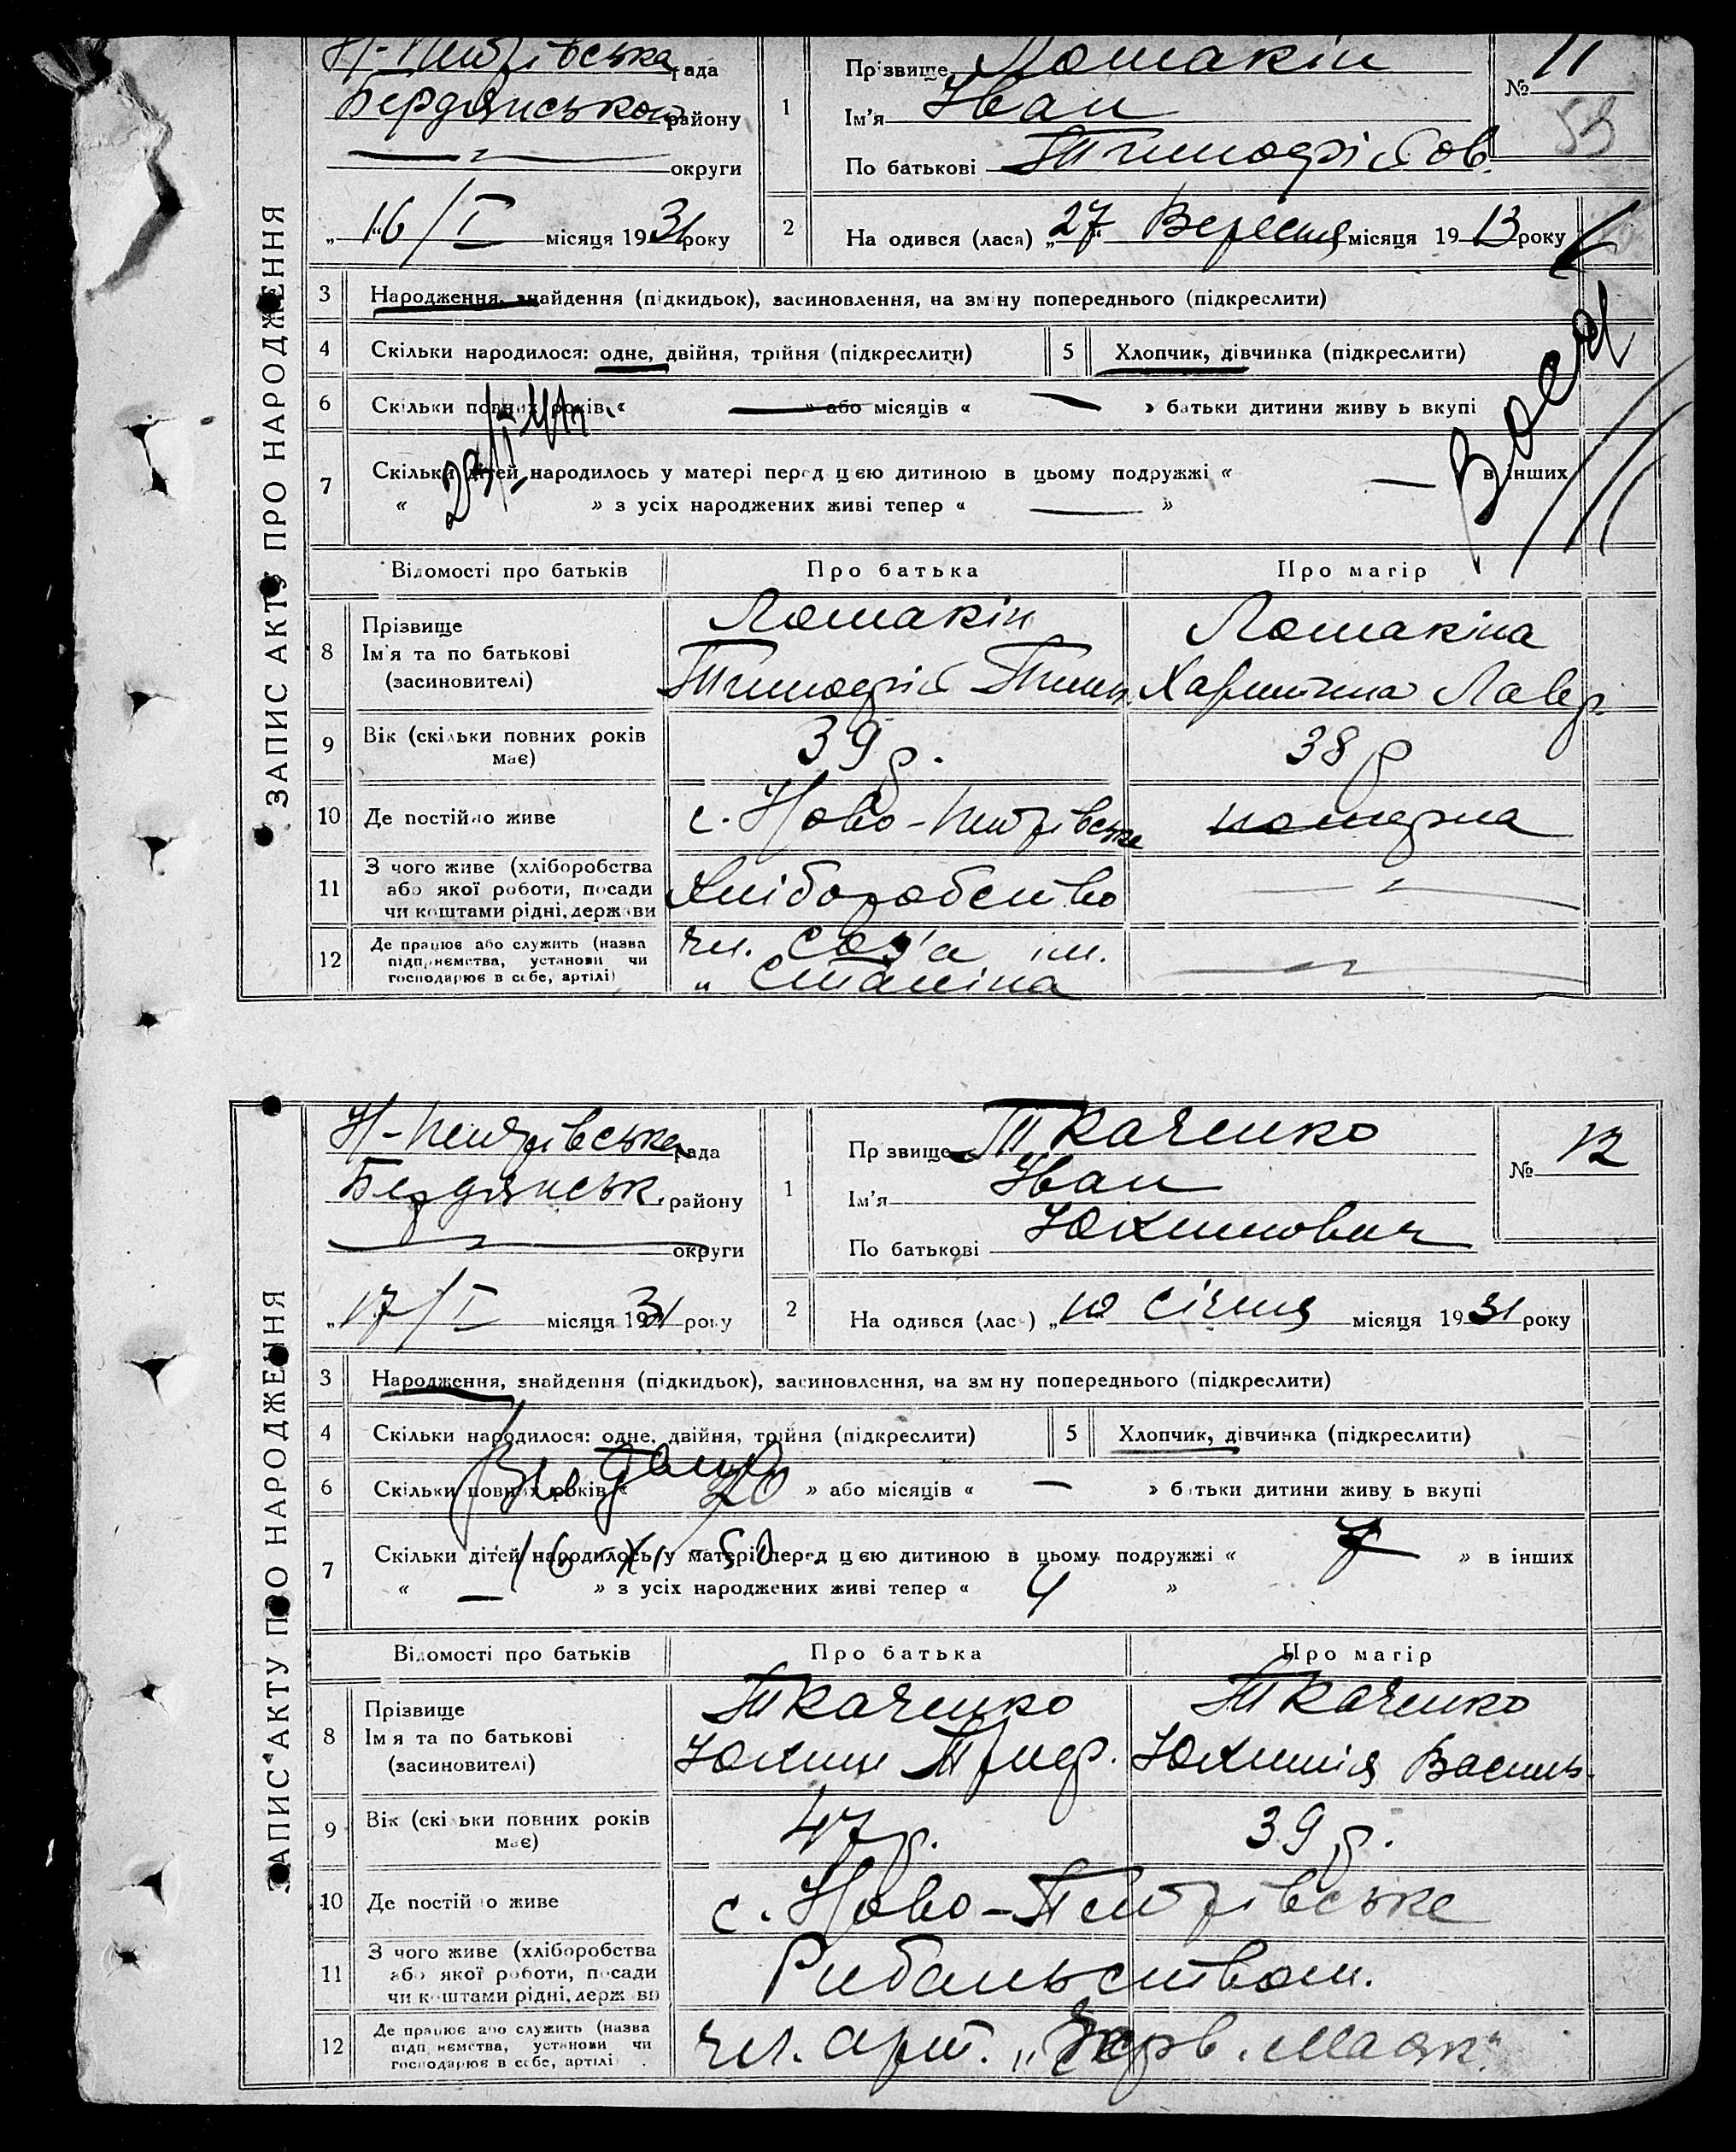 ЗАПИС АКТУ ПРО НАРОДЖЕННЯ
Н-Петрівська рада
Бердянського району
округи
„16/I місяця 1931 року
1
Прізвище Ломакін
Ім'я Іван
По батькові Тимофійов.
№ 11
53
2
На одився (лася) „27" Вересня місяця 1913 року
3 Народження, знайдення (підкидьок), засиновлення, на зміну попереднього (підкреслити)
4 Скільки народилося: одне, двійня, трійня (підкреслити)
5 Хлопчик, дівчинка (підкреслити)
6 Скільки повних років „ — » або місяців « — » батьки дитини живу ь вкупі
7 Скільки дітей народилось у матері перед цією дитиною в цьому подружжі « — в інших
« » з усіх народжених живі тепер « — »
Відомості про батьків Про батька Про матір
8 Прізвище
Ім'я та по батькові
(засиновителі)
Ломакін
Тимофій Тим.
Ломакіна
Харитина Лавр.
9 Вік (скільки повних років має) 39 р. 38 р
10 Де постійно живе с. Ново-Петрівське померла
11 З чого живе (хліборобства
або якої роботи, посади
чи коштами рідні, держави
Хліборобство
12 Де працює або служить (назва
підприємства, установи чи
господарює в себе, артілі)
чл. соз'а ім.
„ Сталіна
ЗАПИС АКТУ ПРО НАРОДЖЕННЯ
Н-Петрівська рада
Бердянськ. району
округи
„17/I місяця 1931 року
1
Пр звище Ткаченко
Ім'я Іван
По батькові Юхимович
№ 12
2
На одився (лас ) „10 січня місяця 1931 року
3 Народження, знайдення (підкидьок), засиновлення, на зм ну попереднього (підкреслити)
4 Скільки народилося: одне, двійня, трійня (підкреслити)
5 Хлопчик, дівчинка (підкреслити)
6 Скільки повних років « 20 » або місяців « — » батьки дитини живу ь вкупі
Видано
16/XI 50
7 Скільки дітей народилось у матері перед цією дитиною в цьому подружжі « 7 » в інших
« — » з усіх народжених живі тепер « 4 »
Відомості про батьків Про батька Про матір
8 Прізвище
Ім'я та по батькові
(засиновителі)
Ткаченко
Юхим Триф.
Ткаченко
Юхимія Василь.
9 Вік (скільки повних років має) 47 р. 39 р.
10 Де постійно живе с. Ново-Петрівське
11 З чого живе (хліборобства
або якої роботи, посади
чи коштами рідні, держави
Рибальством.
12 Де працює або служить (назва
підприємства, установи чи
господарює в себе, артілі)
чл. арт. „Черв. Маяк"